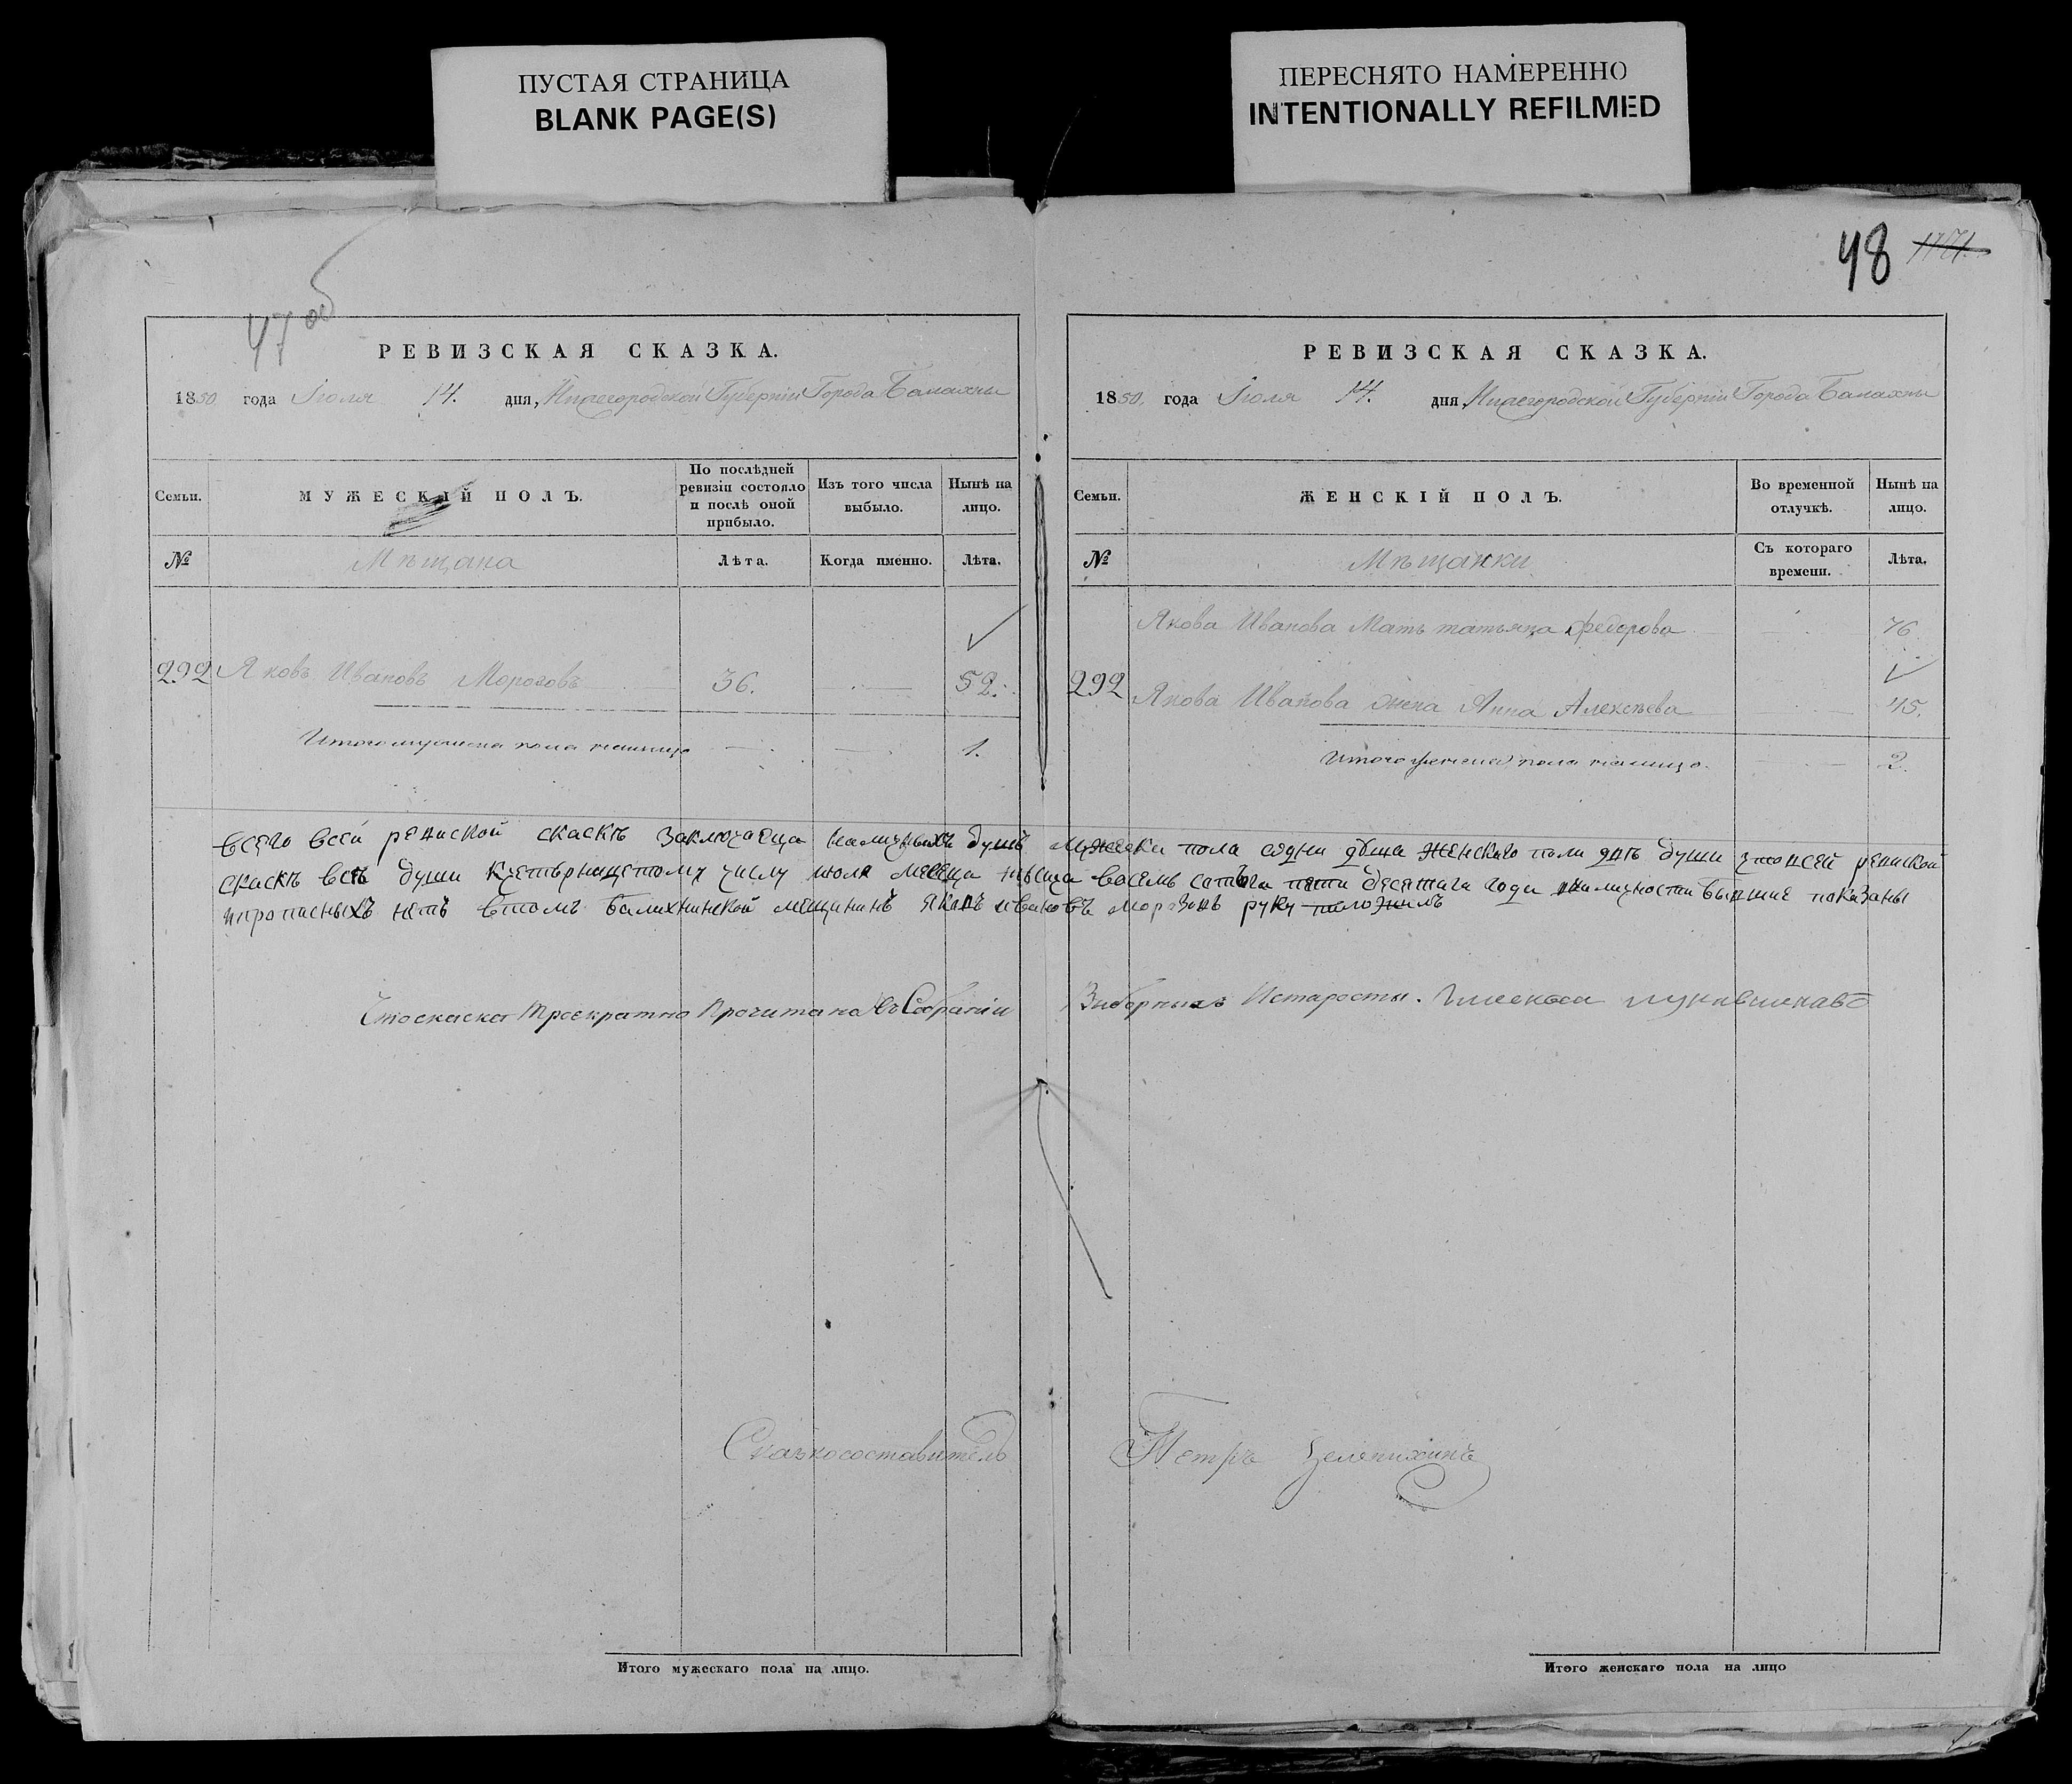 ПУСТАЯ СТРАНИЦА
BLANK PAGE(S)
ПЕРЕСНЯТО НАМЕРЕННО
INTENTIONALLY REFILMED
47 об
РЕВИЗСКАЯ СКАЗКА.
1850 года Іюля 14. дня, Нижегородской Губерніи Города Балахны
Семьи.
МУЖЕСКІЙ ПОЛЪ.
По послѣдней
ревизіи состояло
и послѣ оной
прибыло.
Изъ того числа
выбыло.
Нынѣ на
лицо.
№
Мѣщана
Лѣта.
Когда именно.
Лѣта.
292 Яковъ Ивановъ Морозовъ 36. 52.
Итого мужеска пола налицо 1.
48
РЕВИЗСКАЯ СКАЗКА.
1850. года Іюля 14. дня Нижегородской Губерніи Города Балахны
Семьи.
ЖЕНСКІЙ ПОЛЪ.
Во временной
отлучкѣ.
Нынѣ на
лицо.
№
Мѣщанки
Съ котораго
времени.
Лѣта.
Якова Иванова Мать татьяна федорова 76
292 Якова Иванова жена Анна Алексѣева 45.
Итого женска пола налицо. 2.
всего всей ревиской скаскѣ заключаеца наличныхъ душъ мужеска пола одна женскаго пола двѣ души ревиской
скаскѣ всѣ души числу июля месеца восемь десятаго года показаны
ипрописныхъ нетъ втомъ балихнинской мещининъ Яковъ ивановъ морозовъ руку положилъ
Сто скаска троекратно Прочитана въ Собраніи Выборныхъ Истаросты.
Сказкосоставитель Петръ
Итого мужескаго пола на лицо.
Итого женскаго пола на лицо